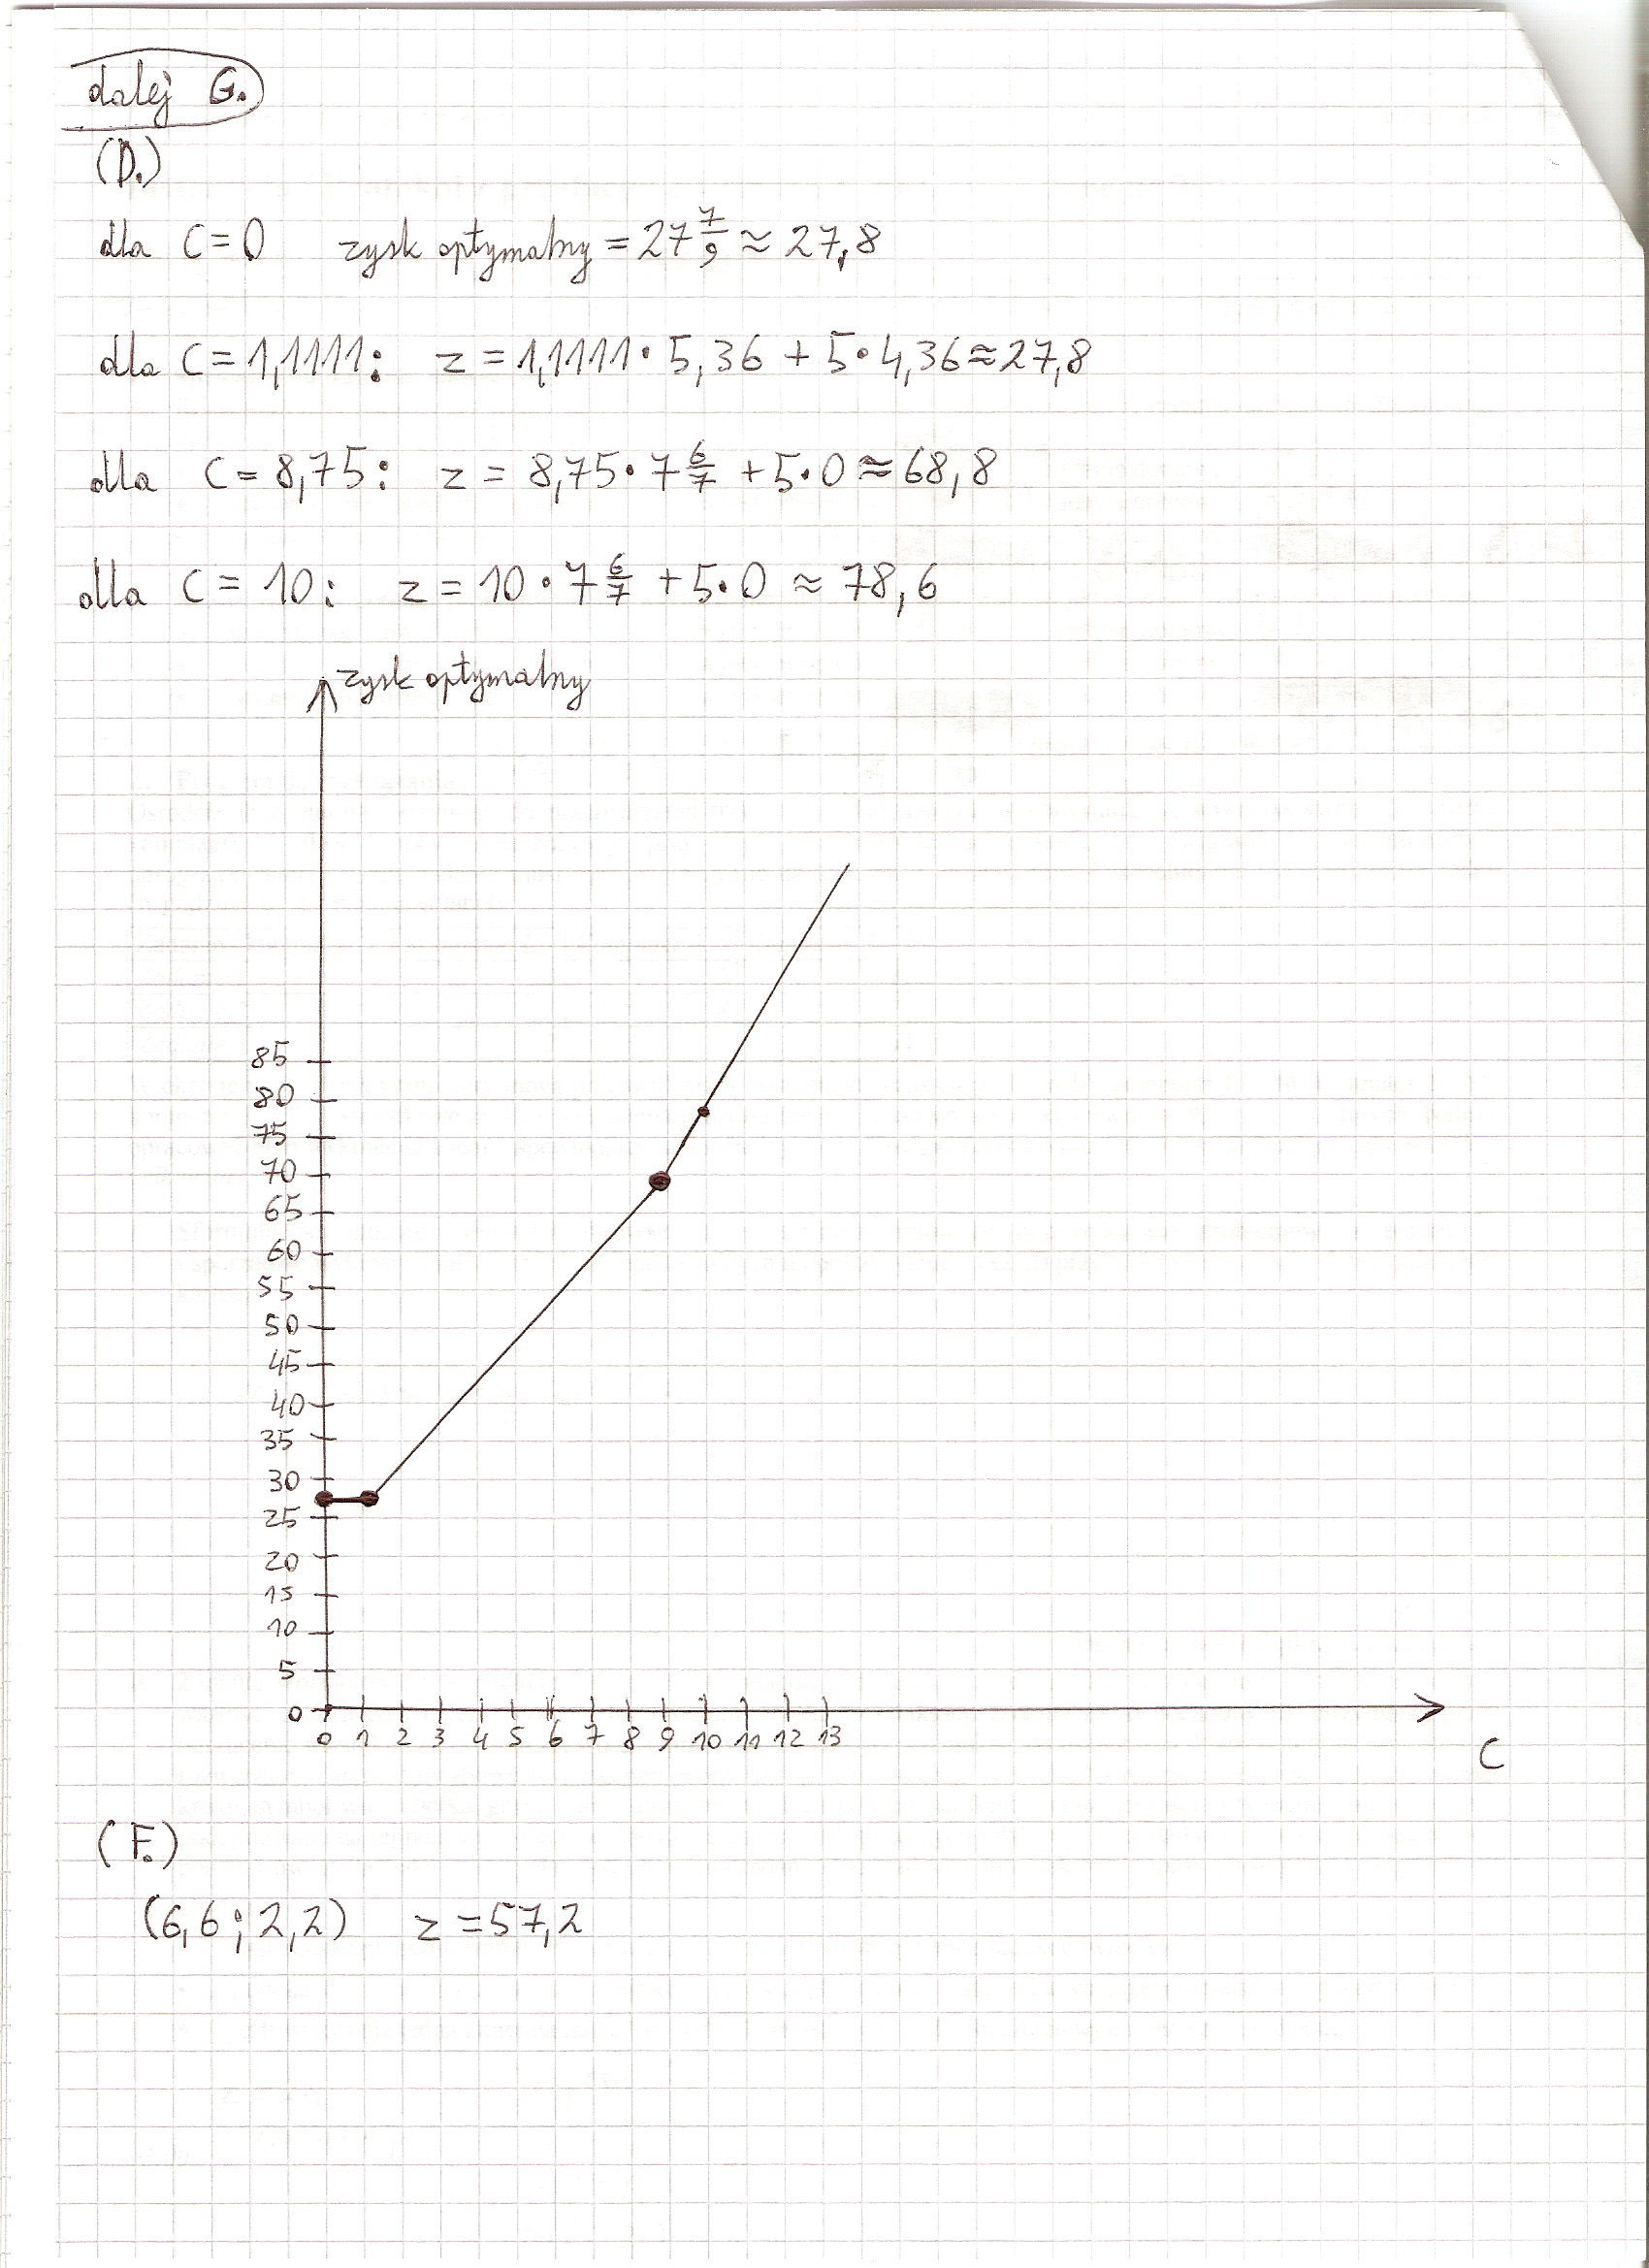 dalej G.
(D.)
dla C=0 zysk optymalny = 27 7/9 ≈ 27,8
dla C=1,1111: z=1,1111·5,36 + 5·4,36≈27,8
dla C=8,75: z = 8,75·7 6/7 +5·0≈68,8
dla C = 10: z = 10·7 6/7 +5·0 ≈ 78,6
zysk optymalny
85
80
75
70
65
60
55
50
45
40
35
30
25
20
15
10
5
0
0 1 2 3 4 5 6 7 8 9 10 11 12 13
C
(F.)
(6,6;2,2) z=57,2